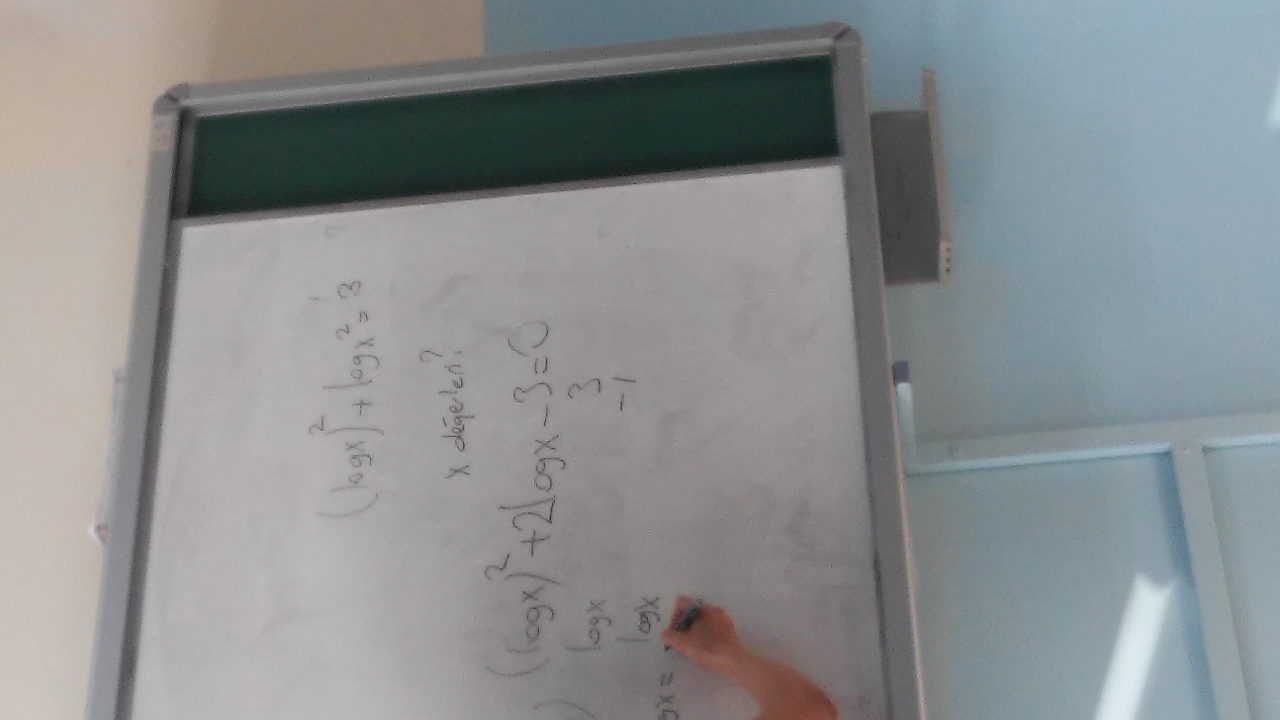 (logx)² + logx² = 3 ?
x değerleri?
(logx)² + 2logx - 3 = 0
logx 3
logx -1
gx =